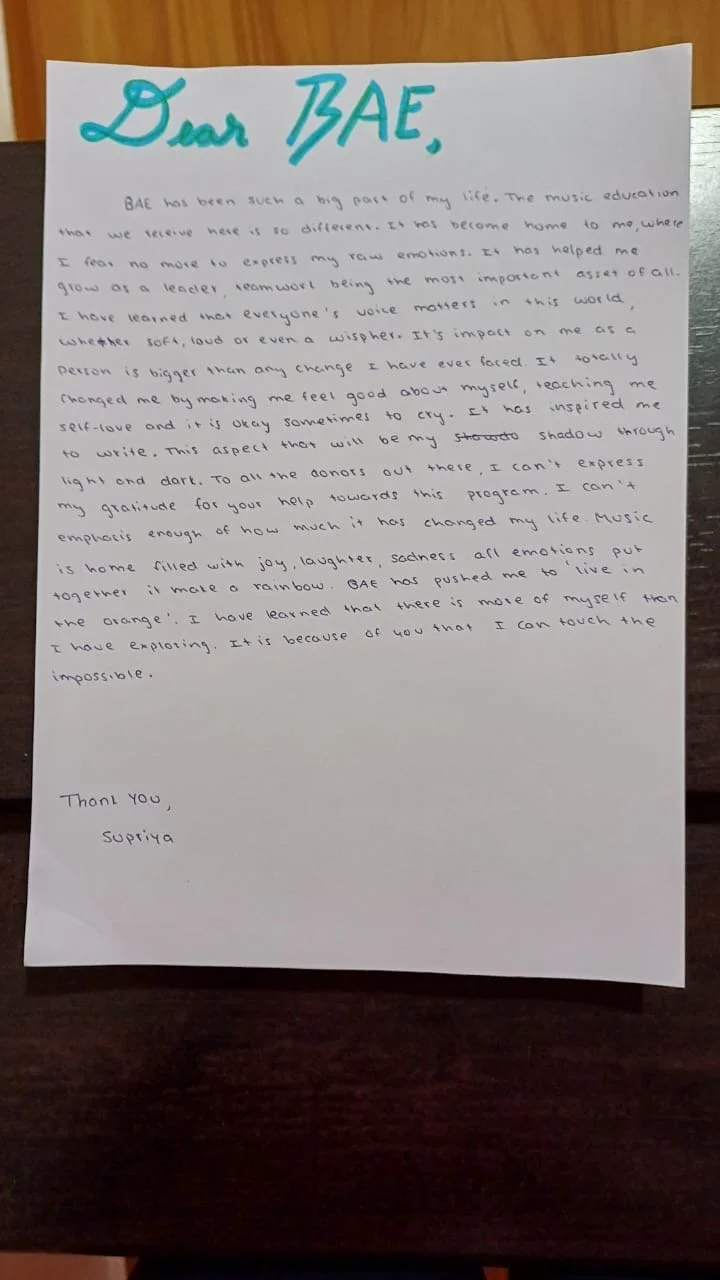 Dear BAE,
BAE has been such a big part of my life. The music education
that we receive here is so different. It has become home to me, where
I fear no more to express my raw emotions. It has helped me
grow as a leader, teamwork being the most important asset of all.
I have learned that everyone's voice matters in this world,
whether soft, loud or even a wispher. It's impact on me as a
person is bigger than any change I have ever faced. It totally
changed me by making me feel good about myself, teaching me
self-love and it is okay sometimes to cry. It has inspired me
to write. This aspect that will be my shadow through
light and dark. To all the donors out there, I can't express
my gratitude for your help towards this program. I can't
emphasis enough of how much it has changed my life. Music
is home filled with joy, laughter, sadness all emotions put
together it make a rainbow. BAE has pushed me to 'live in
the orange'. I have learned that there is more of myself than
I have exploring. It is because of you that I can touch the
impossible.
Thank you,
Supriya